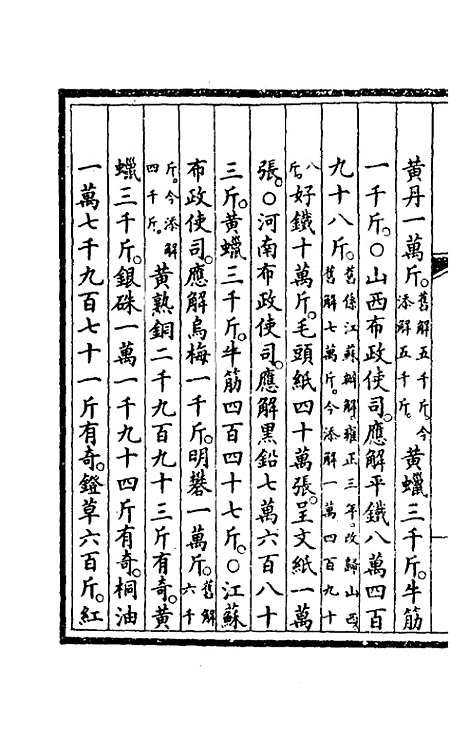 黄丹一萬斤。舊解五千斤。今添解五千斤。黄蠟三千斤。牛筋
一千斤。○山西布政使司。應解平鐵八萬四百
九十八斤。舊係江蘇辦解。雍正三年。改歸山西。舊解七萬斤。今添解一萬四百九十
八斤。好鐵十萬斤。毛頭紙四十萬張。呈文紙一萬
張。○河南布政使司。應解黑鉛七萬六百八十
三斤。黄蠟三千斤。牛筋四百四十七斤。○江蘇
布政使司。應解烏梅一千斤。明礬一萬斤。舊解六千
斤。今添解四千斤。黄熟銅二千九百九十三斤有奇。黄
蠟三千斤。銀硃一萬一千九十四斤有奇。桐油
一萬七千九百七十一斤有奇。鐙草六百斤。紅